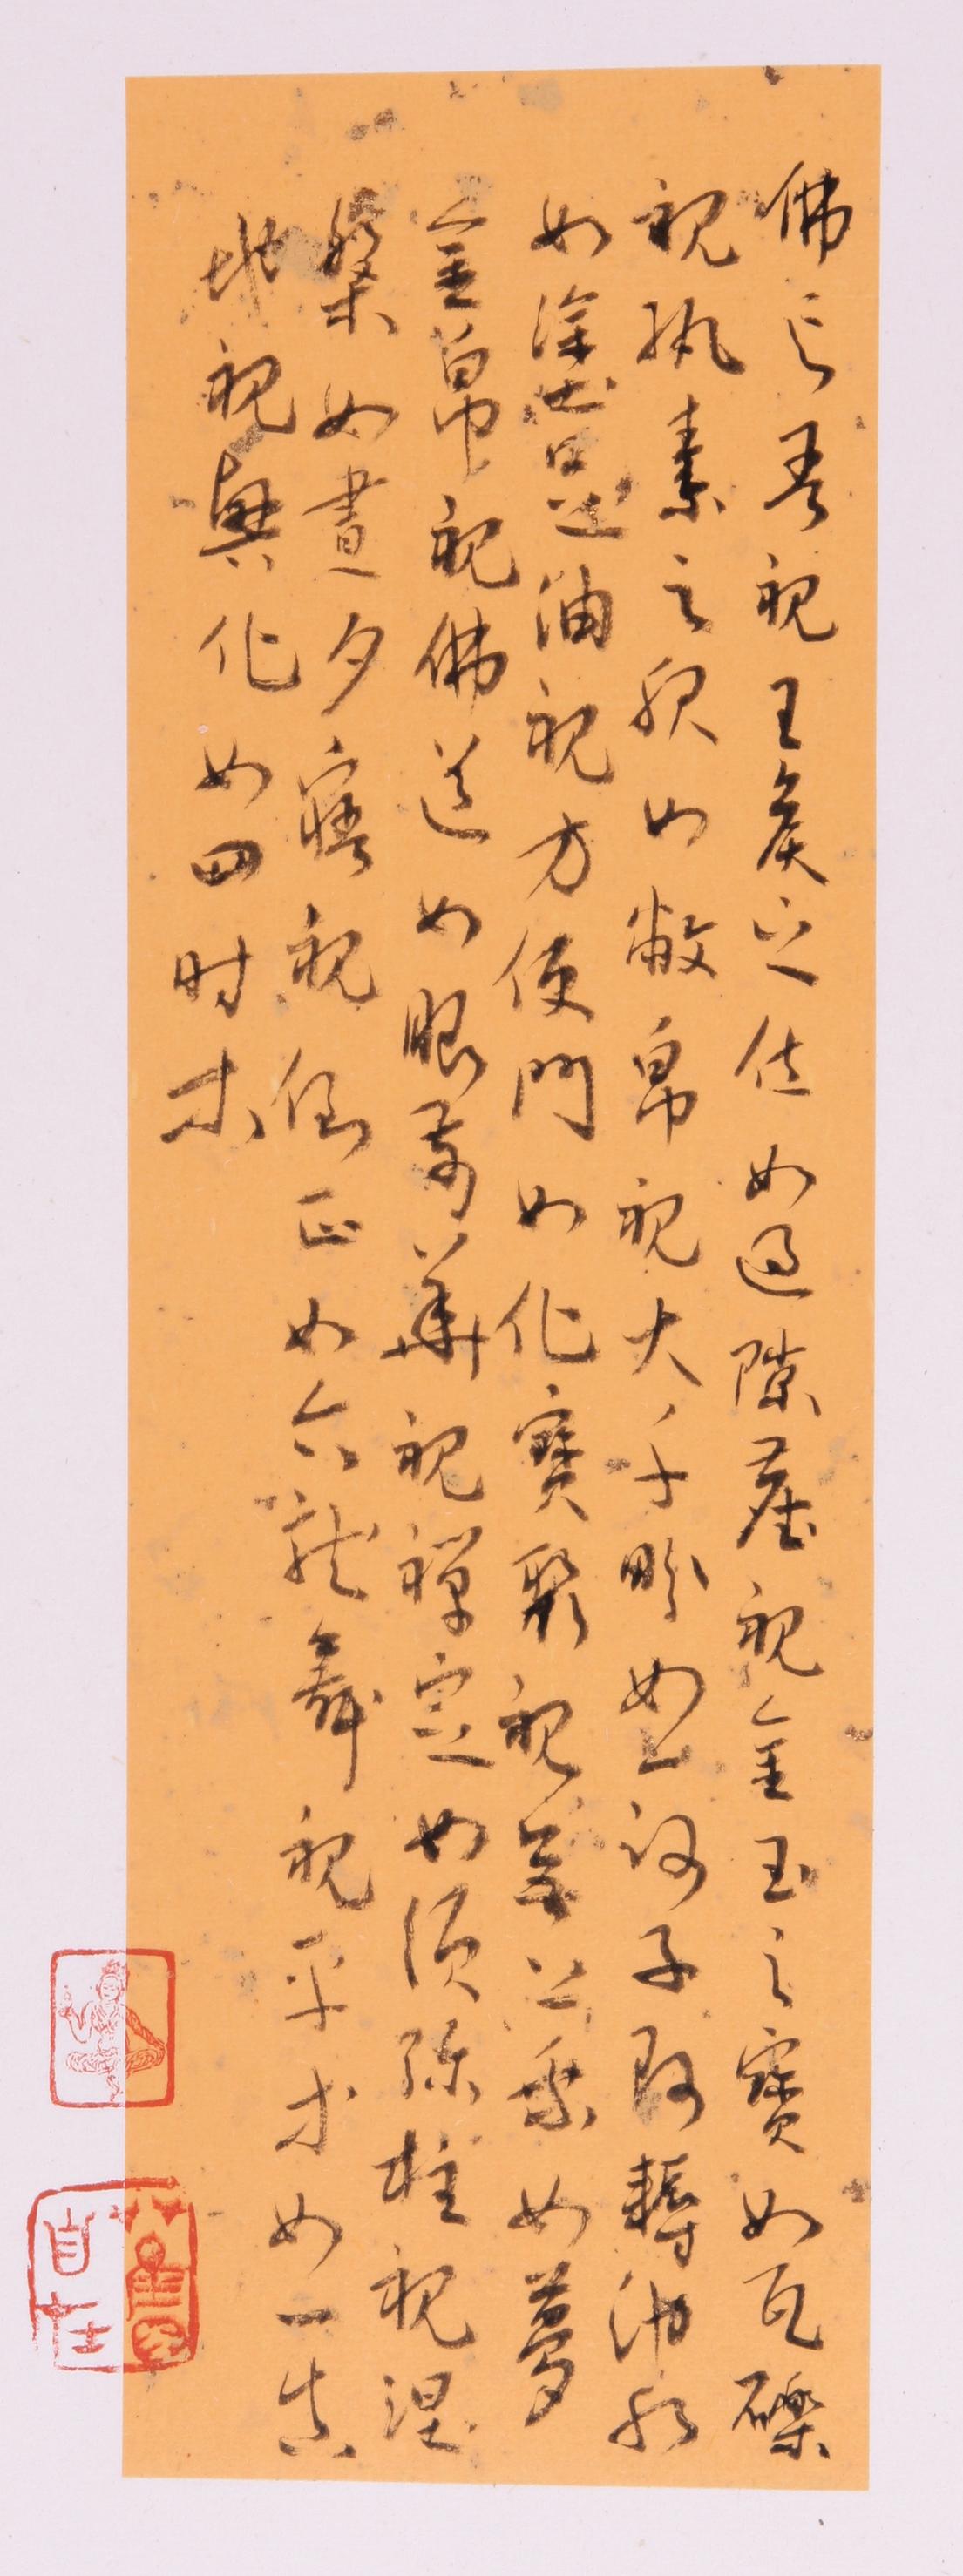 佛言吾視王侯之位如過隙塵視金玉之寶如瓦礫
視紈素之服如敝帛視大千界如一訶子視阿耨池水
如塗足油視方便門如化寶聚視無上乘如夢
金帛視佛道如眼前華視禪定如須彌柱視涅
槃如晝夕寤視倒正如六龍舞視平等如一真
地視興化如四時木
自在